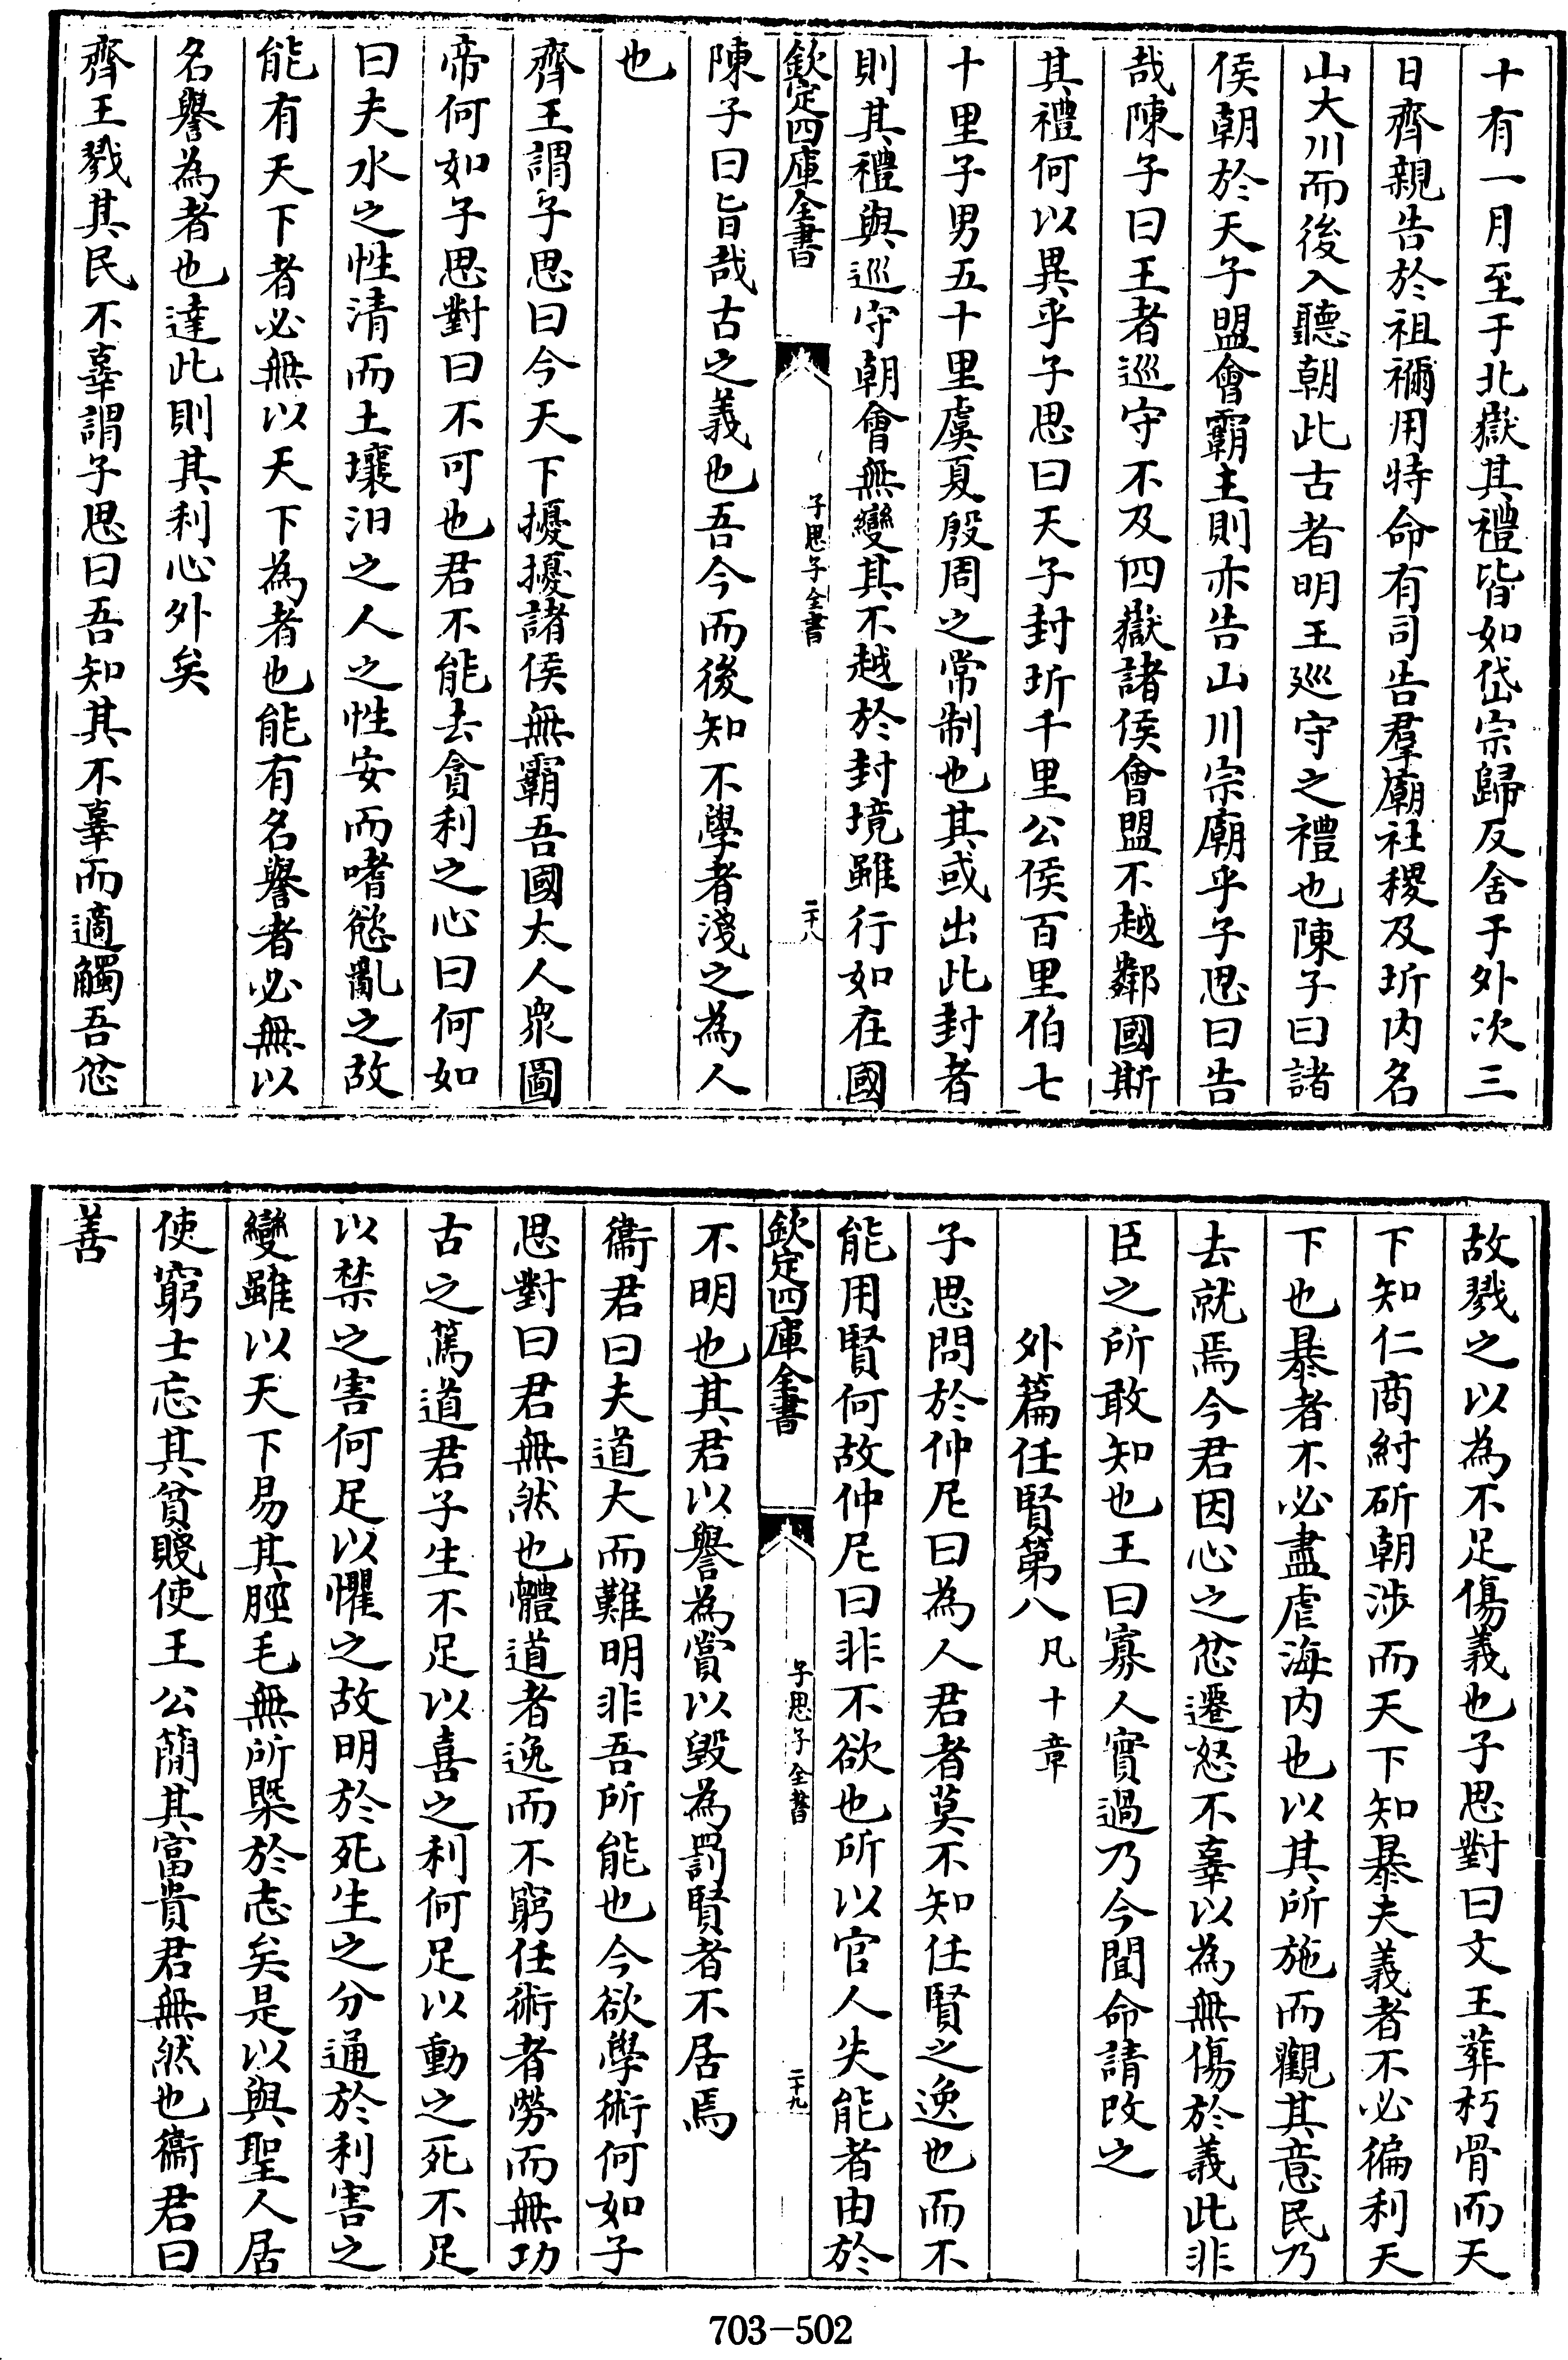 十有一月至于北嶽其禮皆如岱宗歸反舍于外次三
日齊親告於祖禰用特命有司告羣廟社稷及圻内名
山大川而後入聽朝此古者明王廵守之禮也陳子曰諸
侯朝於天子盟會霸主則亦告山川宗廟乎子思曰告
哉陳子曰王者巡守不及四嶽諸侯會盟不越鄰國斯
其禮何以異乎子思曰天子封圻千里公侯百里伯七
十里子男五十里虞夏殷周之常制也其或出此封者
則其禮與巡守朝會無變其不越於封境雖行如在國
欽定四庫全書
子思子全書
二十八
陳子曰旨哉古之義也吾今而後知不學者淺之為人
也
齊王謂子思曰今天下擾擾諸侯無霸吾國大人衆圖
帝何如子思對曰不可也君不能去貪利之心曰何如
曰夫水之性清而土壤汨之人之性安而嗜慾亂之故
能有天下者必無以天下為者也能有名譽者必無以
名譽為者也達此則其利心外矣
齊王戮其民不辜謂子思曰吾知其不辜而適觸吾忿
故戮之以為不足傷義也子思對曰文王葬朽骨而天
下知仁商紂斫朝涉而天下知暴夫義者不必徧利天
下也暴者不必盡虐海内也以其所施而觀其意民乃
去就焉今君因心之忿遷怒不辜以為無傷於義此非
臣之所敢知也王曰寡人實過乃今聞命請改之
外篇任賢第八 凡十章
子思問於仲尼曰為人君者莫不知任賢之逸也而不
能用賢何故仲尼曰非不欲也所以官人失能者由於
欽定四庫全書
子思子全書
二十九
不明也其君以譽為賞以毀為罰賢者不居焉
衞君曰夫道大而難明非吾所能也今欲學術何如子
思對曰君無然也體道者逸而不窮任術者勞而無功
古之篤道君子生不足以喜之利何足以動之死不足
以禁之害何足以懼之故明於死生之分通於利害之
變雖以天下易其脛毛無所槩於志矣是以與聖人居
使窮士忘其貧賤使王公簡其富貴君無然也衞君曰
善
703-502